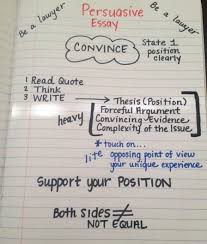 Persuasive
Essay
Be a lawyer
Be a lawyer
CONVINCE
State 1
position
clearly
1 Read Quote
2 Think
3 WRITE → Thesis (Position)
heavy
Forceful Argument
Convincing Evidence
Complexity of the Issue
* touch on...
lite opposing point of view
your unique experience
Support your POSITION
Both sides ≠
NOT EQUAL